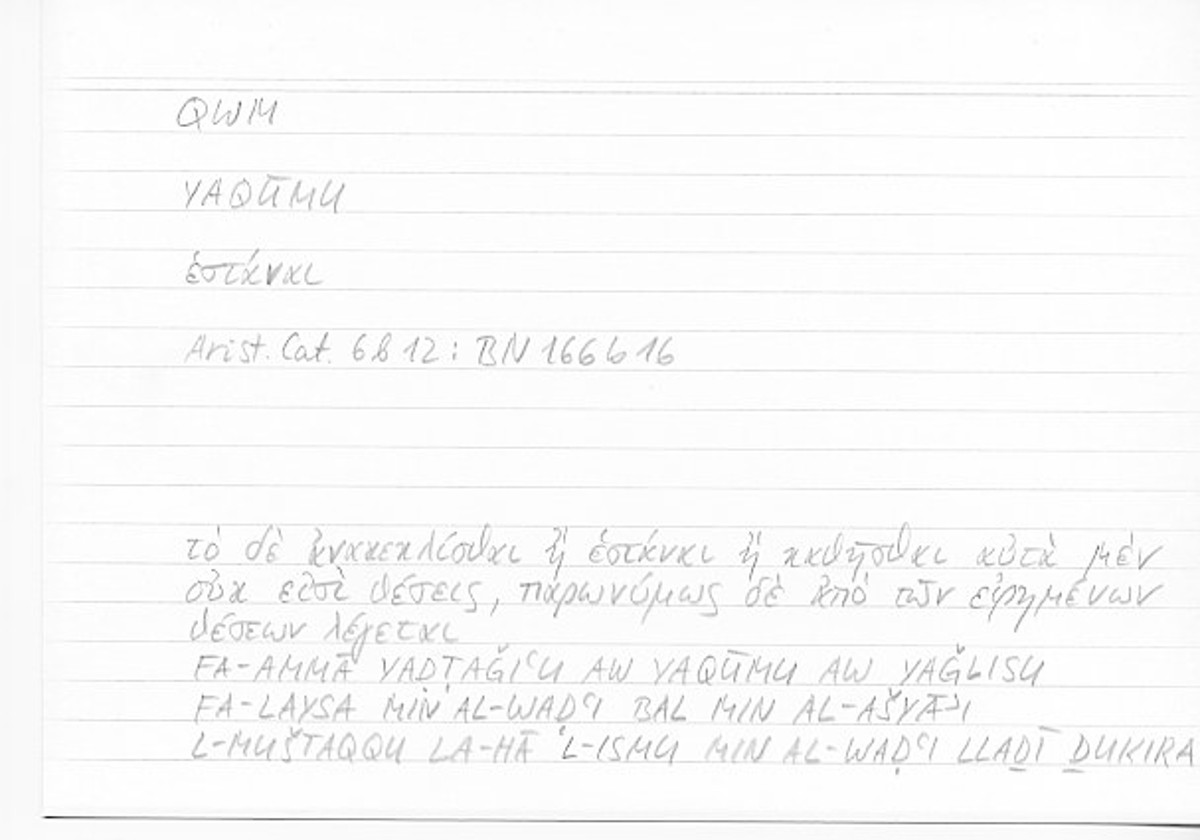 QWM
YAQŪMU
ἑστάναι
Arist. Cat. 6b12: BN 166b16
τὸ δὲ ἀνακεκλίσθαι ἢ ἑστάναι ἢ καθῆσθαι αὐτὰ μὲν
οὐκ εἰσὶ θέσεις, παρωνύμως δὲ ἀπὸ τῶν εἰρημένων
θέσεων λέγεται
FA-AMMĀ YAḌṬAǦIʿU AW YAQŪMU AW YAǦLISU
FA-LAYSA MIN AL-WAḌʿI BAL MIN AL-AŠYĀʾI
L-MUŠTAQQU LA-HĀ ʾL-ISMU MIN AL-WAḌʿI LLAḎĪ ḎUKIRA